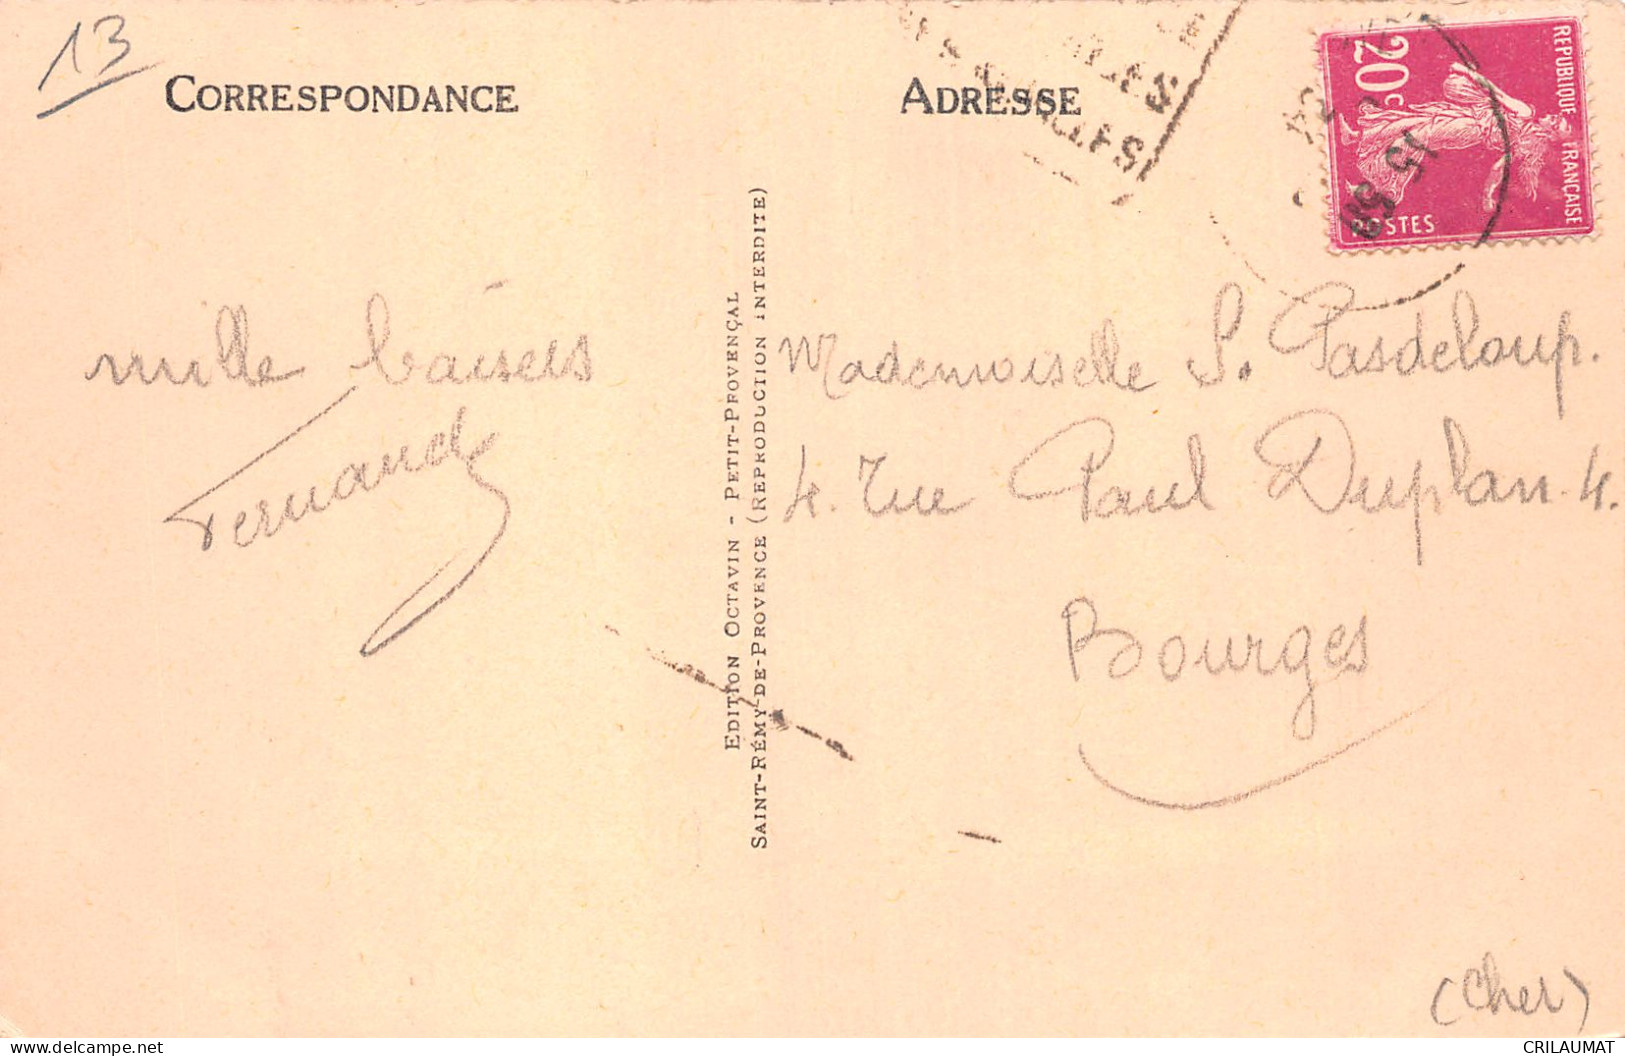 13
CORRESPONDANCE
ADRESSE
REPUBLIQUE FRANÇAISE
20c
POSTES
15
mille baisers
Fernand
EDITION OCTAVIN - PETIT-PROVENÇAL
SAINT-RÉMY-DE-PROVENCE (REPRODUCTION INTERDITE)
Mademoiselle S. Pasdeloup.
4. rue Paul Duplan. 4.
Bourges
(Cher)
CRILAUMAT